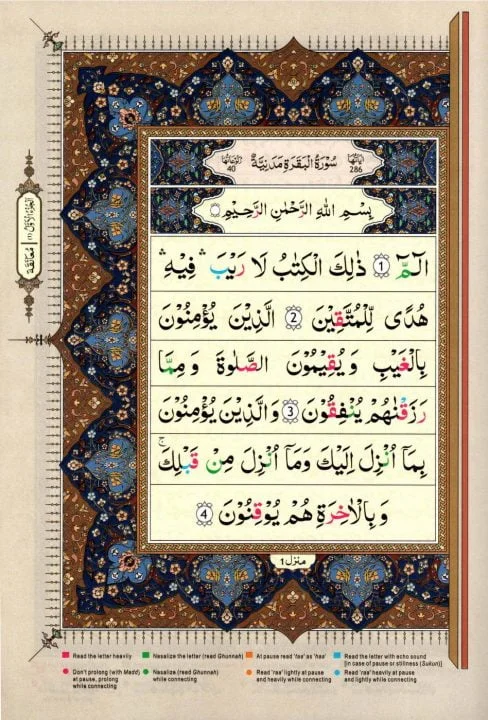 سُوْرَةُ الْبَقَرَةِ مَدَنِيَّةٌ
اٰيَاتُهَا 286
رُكُوْعَاتُهَا 40
بِسْمِ اللّٰهِ الرَّحْمٰنِ الرَّحِيْمِ
الٓمّٓ ۝1 ذٰلِكَ الْكِتٰبُ لَا رَيْبَ ۛ فِيْهِ ۛ
هُدًى لِّلْمُتَّقِيْنَ ۝2 الَّذِيْنَ يُؤْمِنُوْنَ
بِالْغَيْبِ وَ يُقِيْمُوْنَ الصَّلٰوةَ وَ مِمَّا
رَزَقْنٰهُمْ يُنْفِقُوْنَ ۝3 وَ الَّذِيْنَ يُؤْمِنُوْنَ
بِمَاۤ اُنْزِلَ اِلَيْكَ وَمَاۤ اُنْزِلَ مِنْ قَبْلِكَ ۚ
وَ بِالْاٰخِرَةِ هُمْ يُوْقِنُوْنَ ۝4
منزل ١
الجزء الاول (١)
معانقة
Read the letter heavily
Nasalize the letter (read Ghunnah)
At pause read 'taa' as 'haa'
Read the letter with echo sound
[in case of pause or stillness (Sukon)]
Don't prolong (with Madd)
at pause, prolong
while connecting
Nasalize (read Ghunnah)
while connecting
Read 'raa' lightly at pause
and heavily while connecting
Read 'raa' heavily at pause
and lightly while connecting